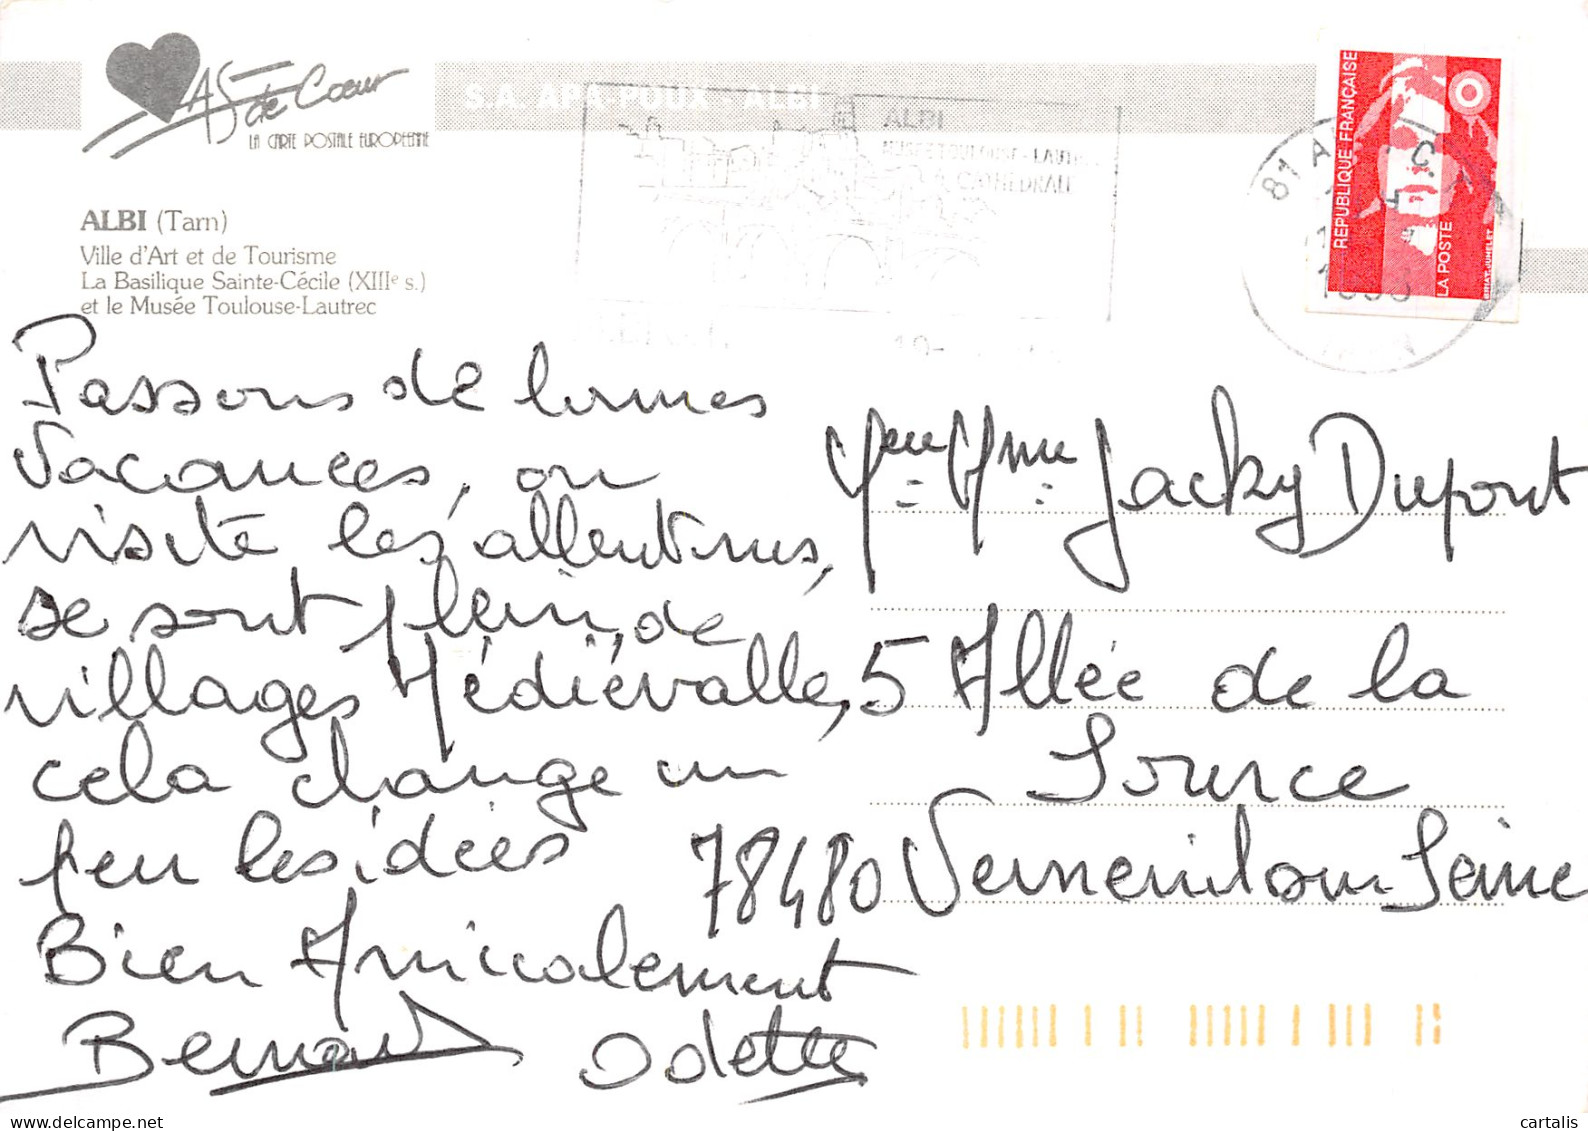 AS de Cœur
LA CARTE POSTALE EUROPÉENNE
S.A. APA-POUX - ALBI
ALBI
CATHEDRALE
81 A
REPUBLIQUE FRANÇAISE
LA POSTE
BRIAT. JUMELET
ALBI (Tarn)
Ville d'Art et de Tourisme
La Basilique Sainte-Cécile (XIIIe s.)
et le Musée Toulouse-Lautrec
Passons de bonnes
vacances, on
visite les allentours,
se sont plein, de
villages Médiévalle,
cela change un
peu les idées
Bien Amicalement
Bernard Odette
Meur Mme Jacky Dupont
5 Allée de la
Source
78480 Verneuil sur Seine
cartalis